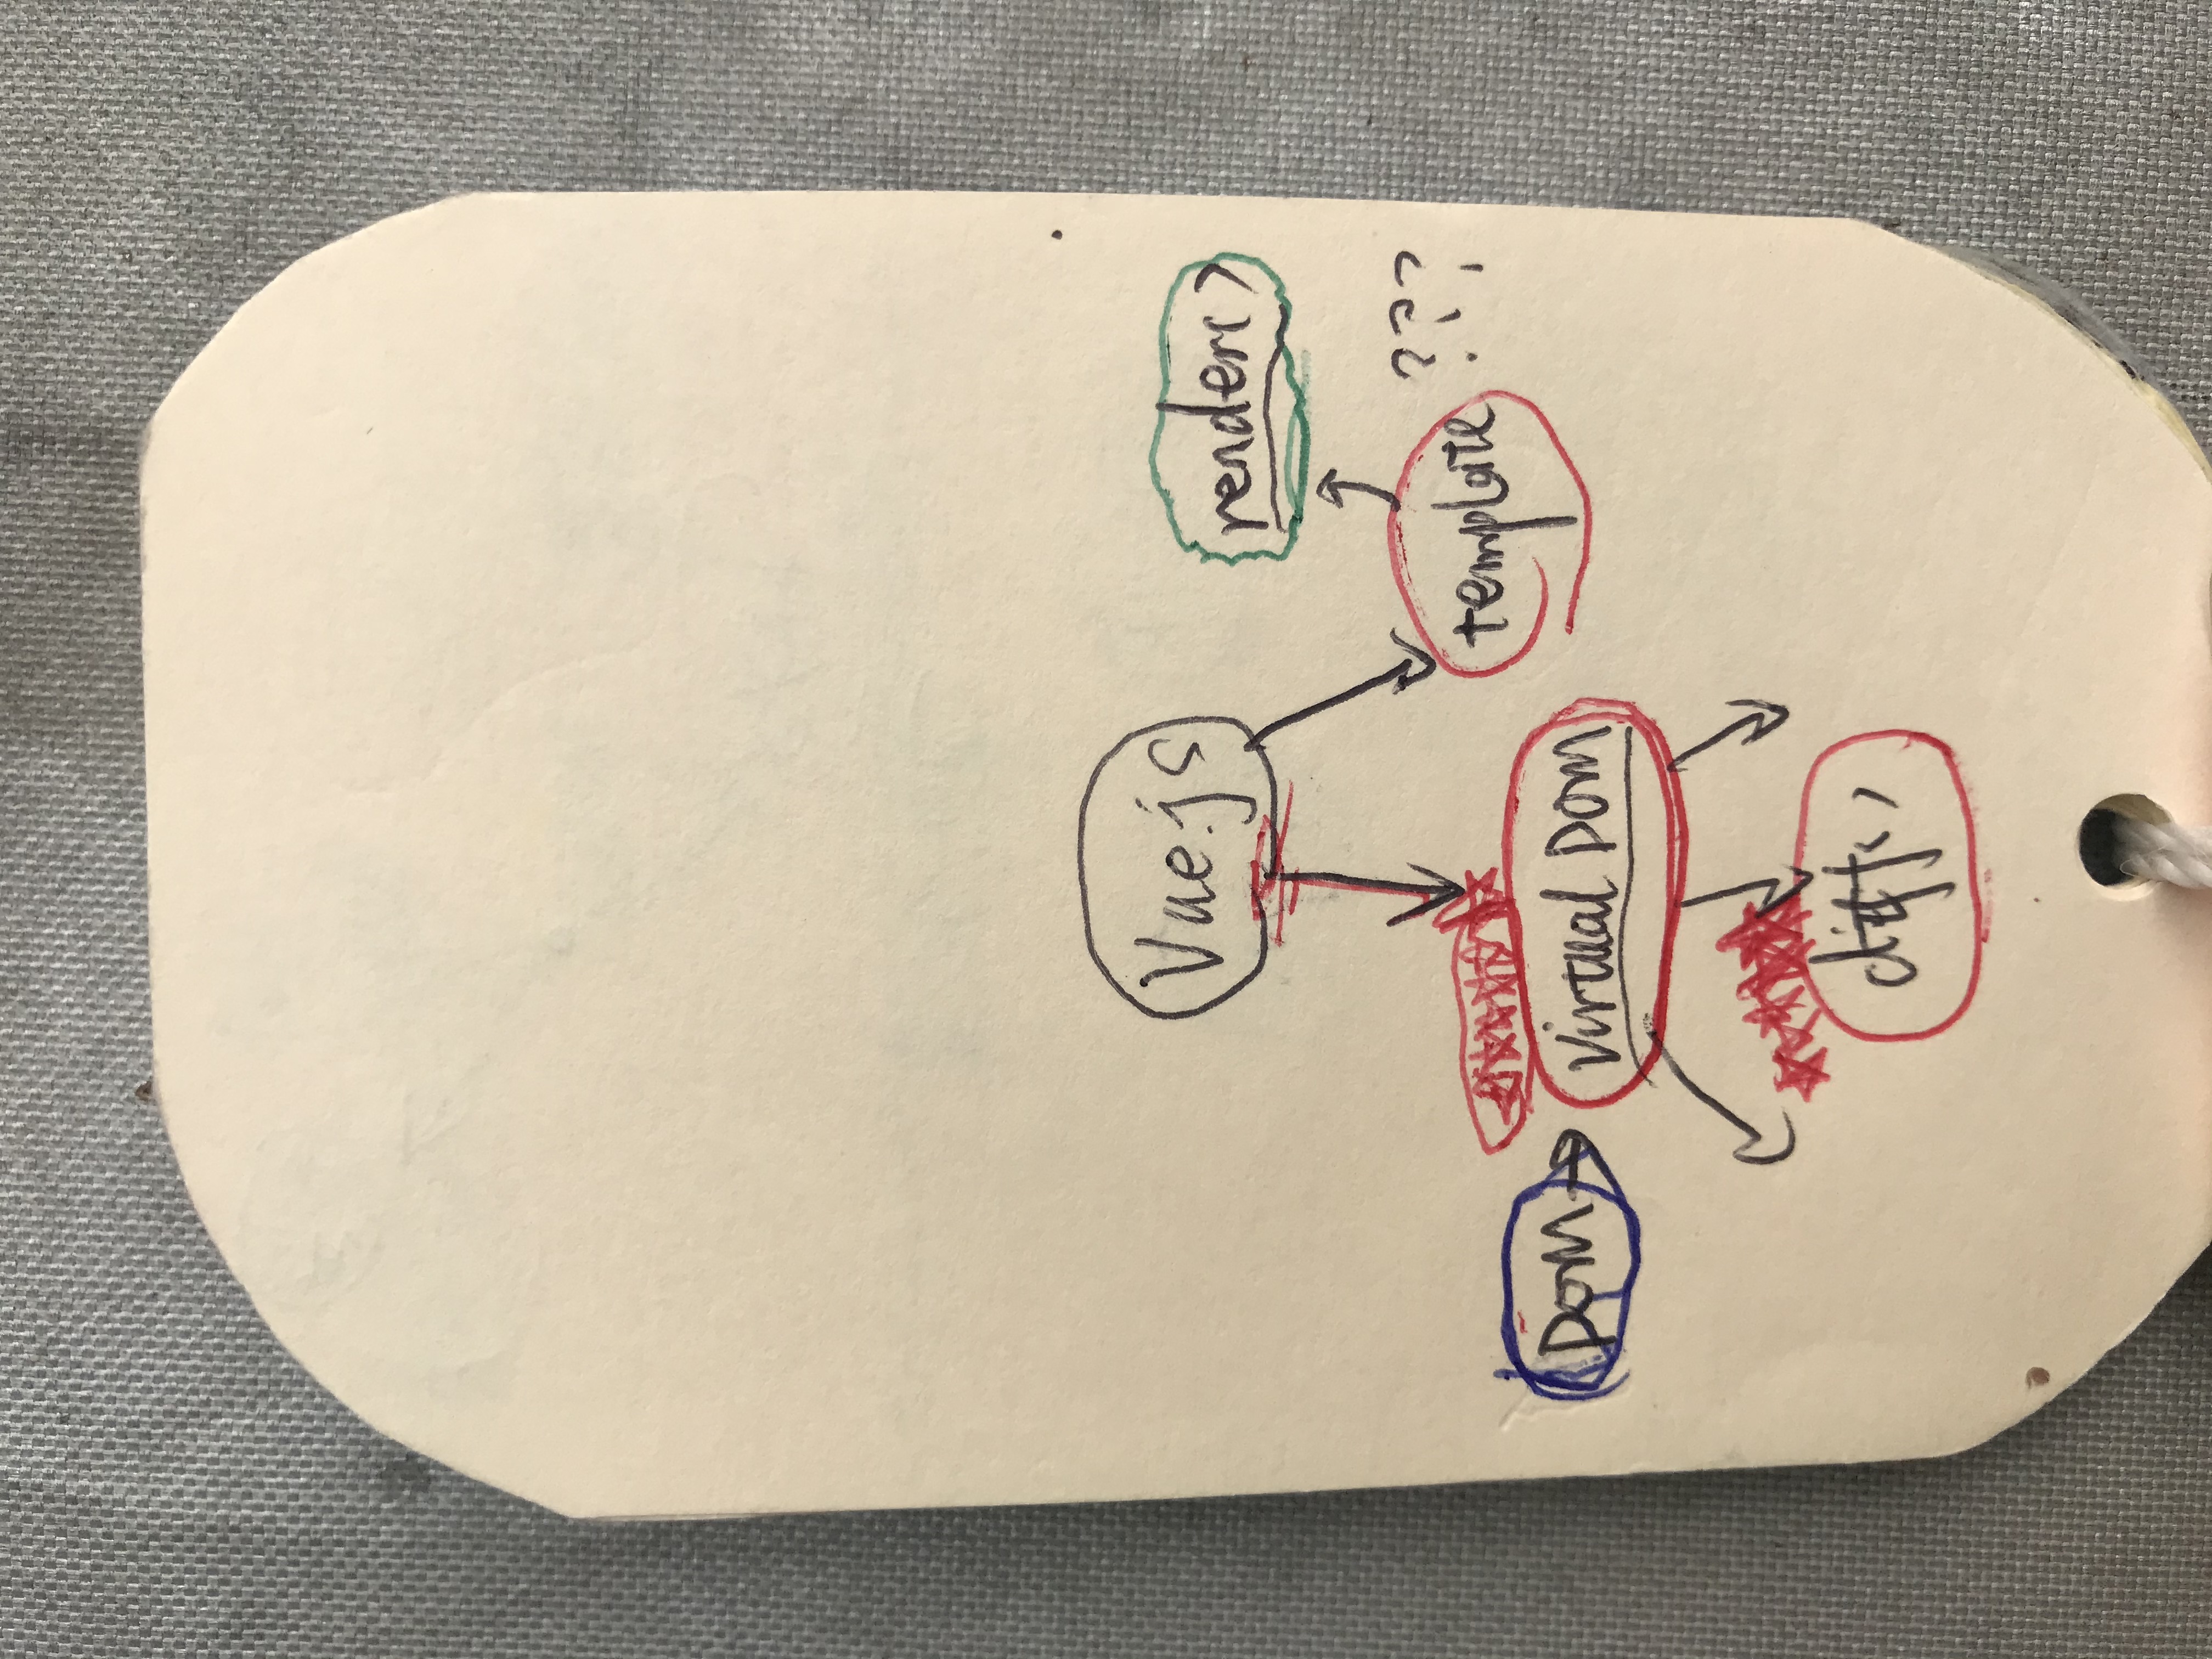 Vue.js
render()
template ???
DOM
Virtual DOM
diff()